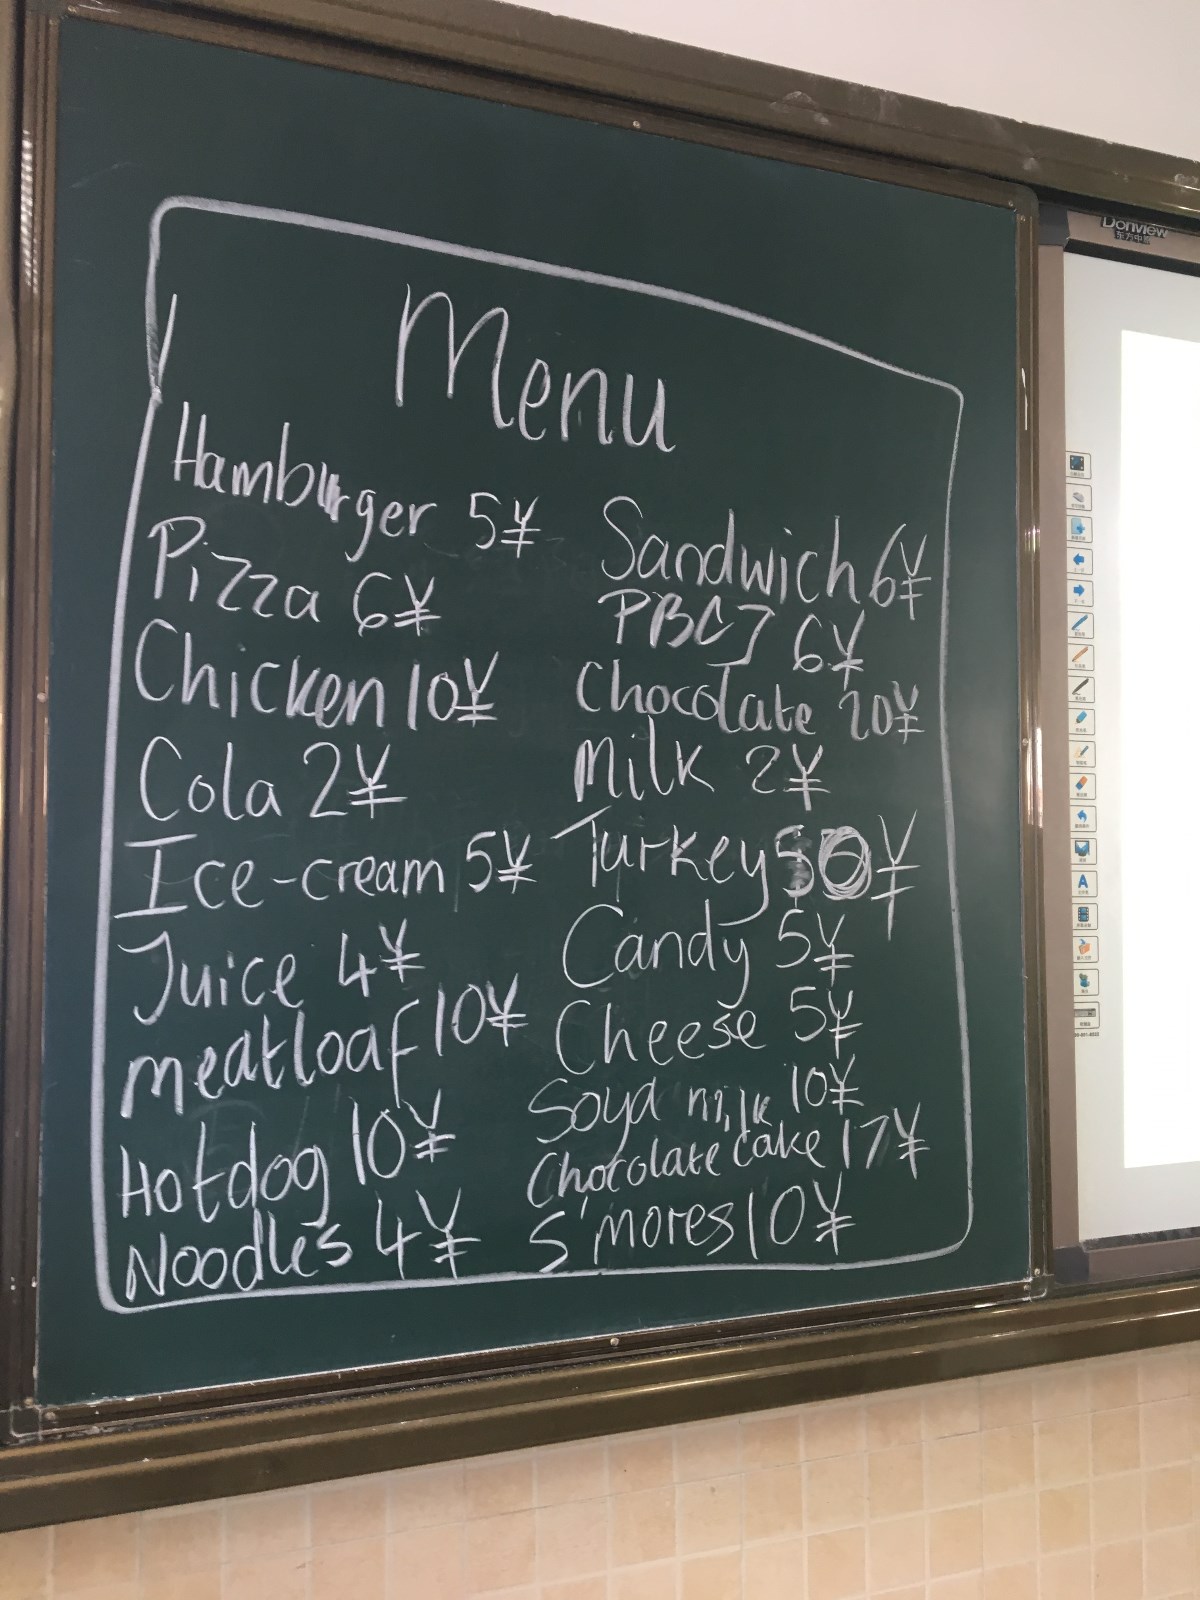 Menu
Hamburger 5¥
Pizza 6¥
Chicken 10¥
Cola 2¥
Ice-cream 5¥
Juice 4¥
meatloaf 10¥
Hotdog 10¥
Noodles 4¥
Sandwich 6¥
PBCJ 6¥
Chocolate 20¥
Milk 2¥
Turkey 50¥
Candy 5¥
Cheese 5¥
Soya milk 10¥
Chocolate cake 17¥
S'mores 10¥
Donview
东方中原